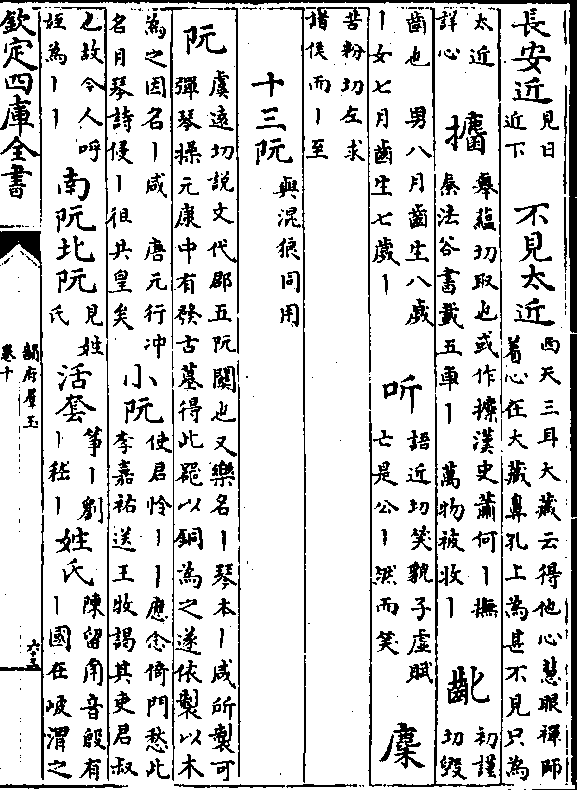 長安近
見日
近下
不見太近
西天三耳大藏云得他心慧眼禪師
着心在大藏鼻孔上為甚不見只為
太近
詳心
攟
舉蘊切取也或作攈漢史蕭何丨撫
秦法谷書載五車丨萬物被收丨
齔
初謹
切毀
齒也 男八月齒生八歲
丨女七月齒生七歲丨
听
語近切笑貌子虛賦
亡是公丨然而笑
麇
苦粉切左求
諸侯而丨至
十三阮
與混狠同用
阮
虞遠切說文代郡五阮關也又樂名丨琴本丨咸所製可
彈琴操元康中有發古墓得此器以銅為之遂依製以木
為之因名丨咸 唐元行冲
名月琴詩侵丨徂共皇矣
小阮
使君怜丨丨應念倚門愁此
李嘉祐送王牧謁其吏君叔
也故令人呼
姪為丨丨
南阮北阮
見姓
氏
活套
箏丨劉
丨嵇丨
姓氏
陳留角音殷有
丨國在岐渭之
欽定四庫全書
韻府羣玉
卷十